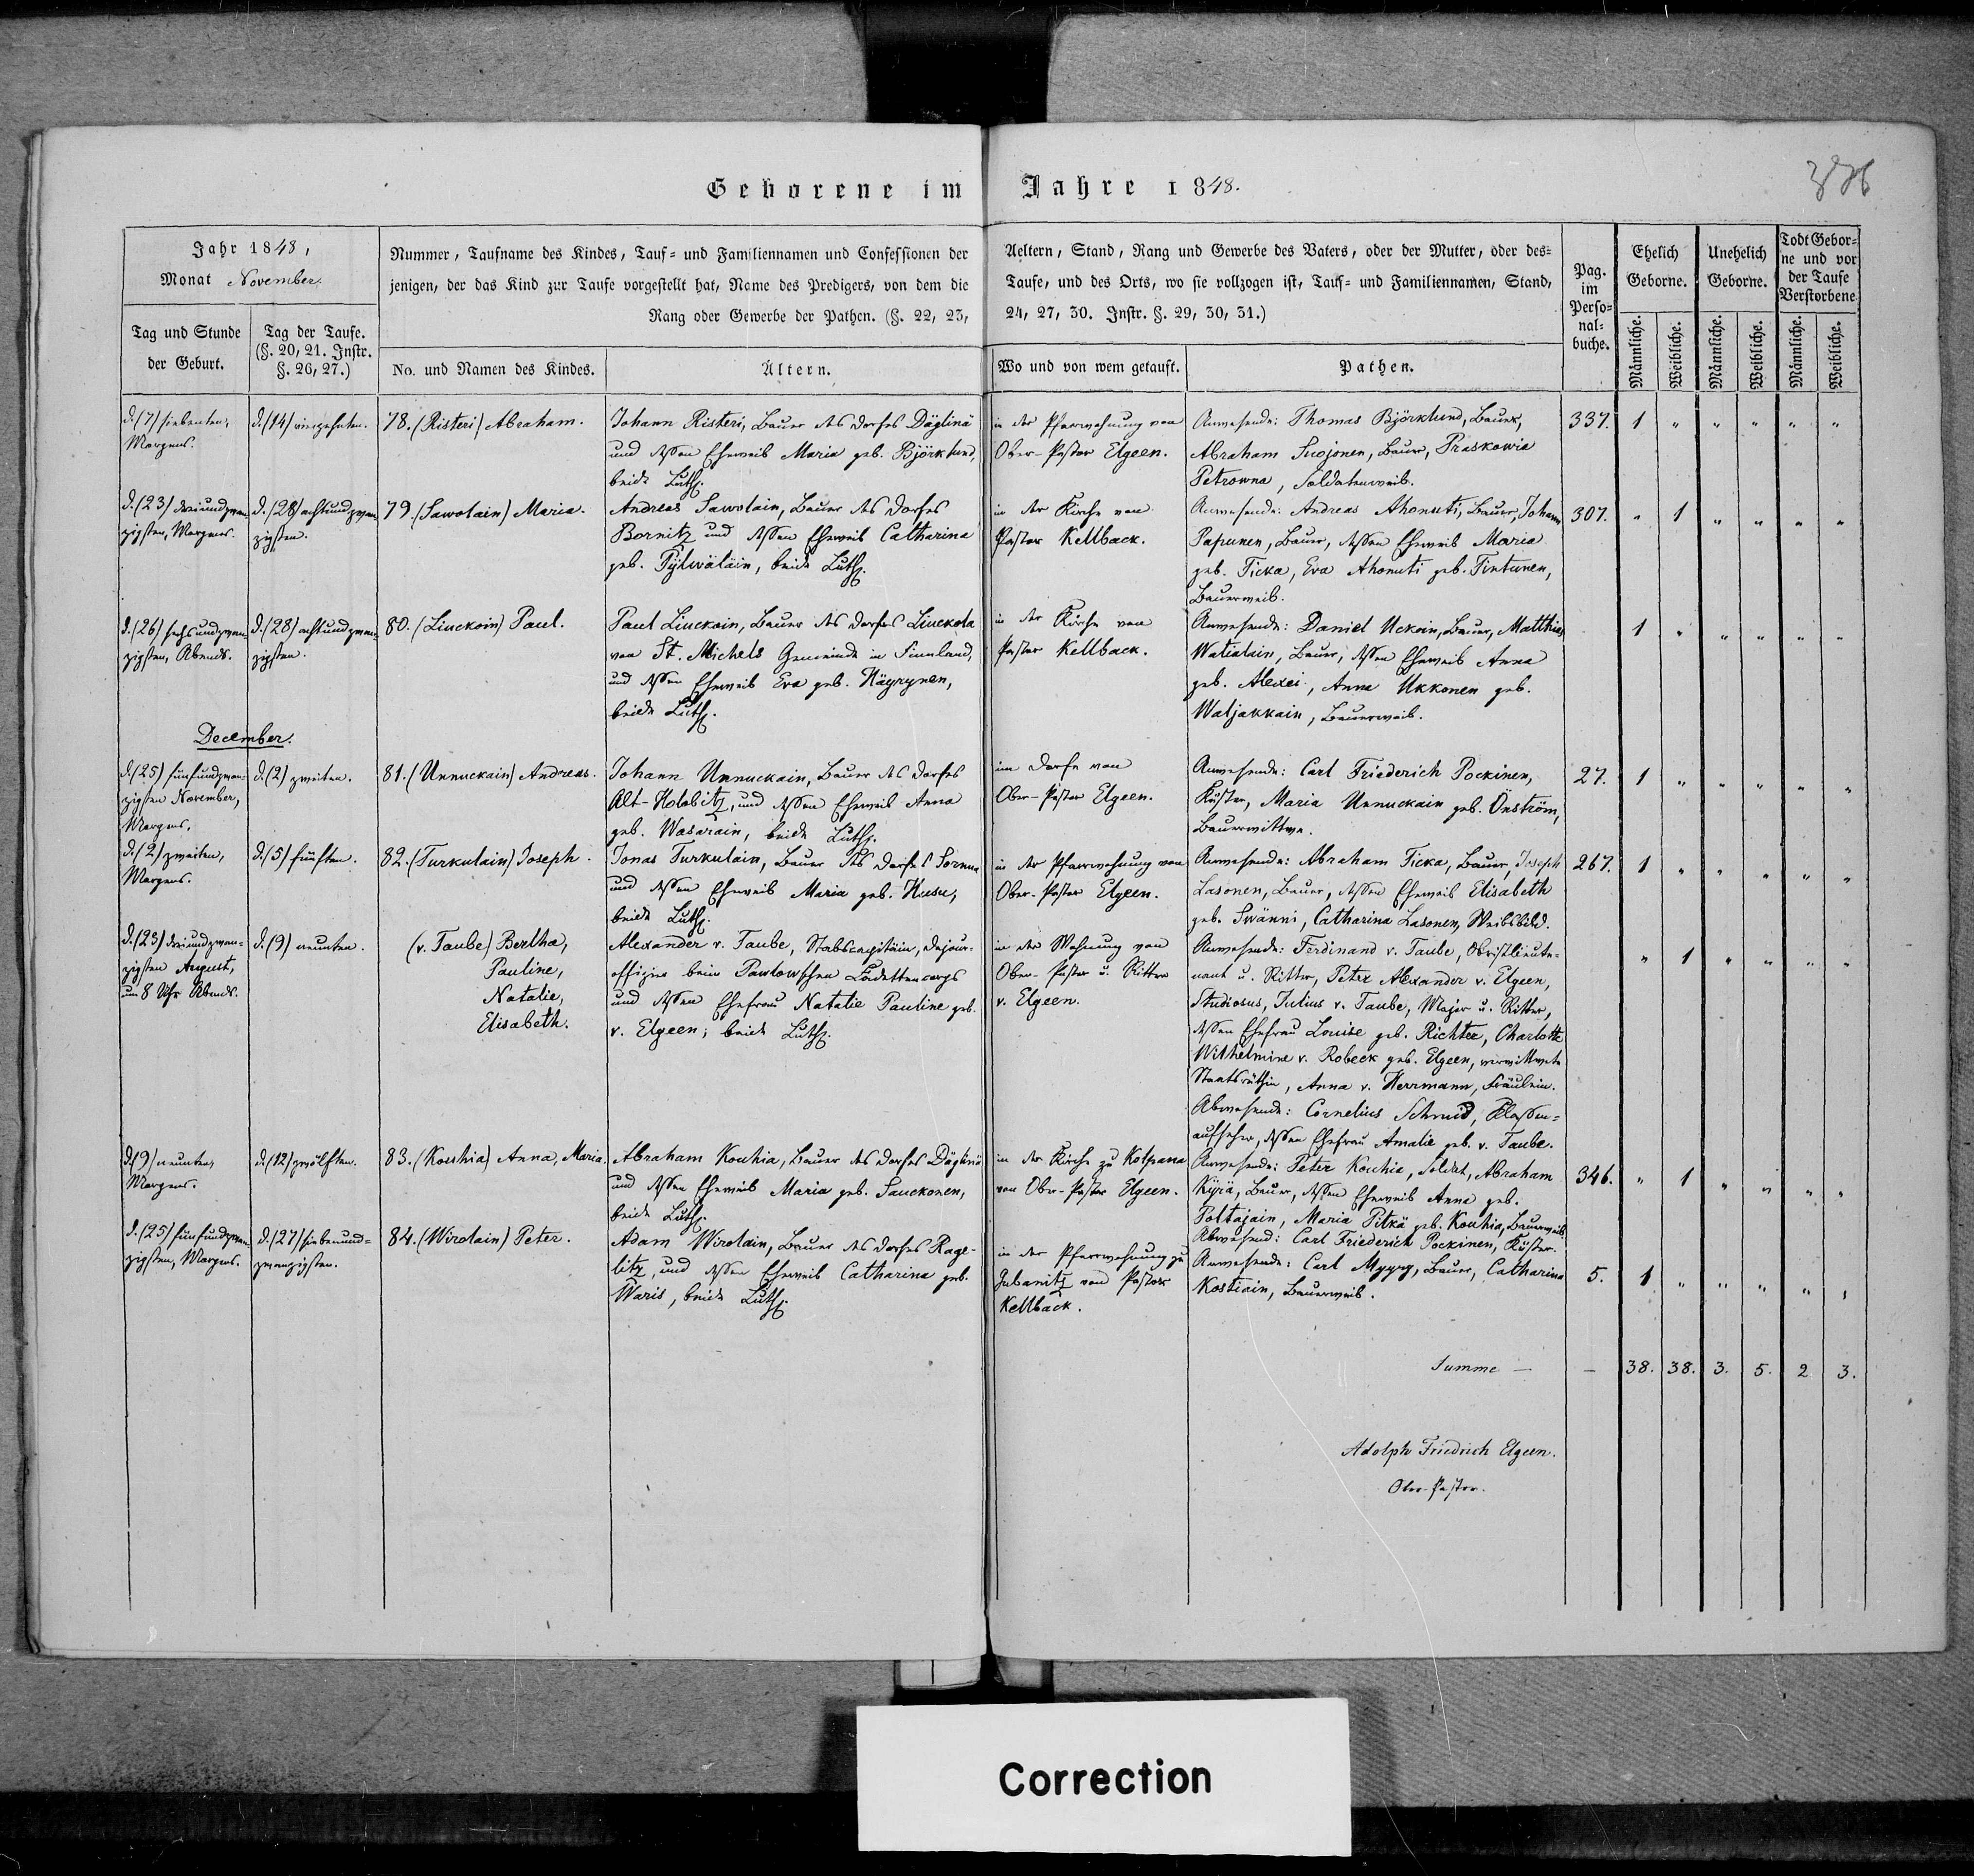 Geborene im Jahre 1848.
Jahr 1848,
Monat November.
Tag und Stunde
der Geburt.
Tag der Taufe.
(§. 20, 21. Instr.
§. 26, 27.)
Nummer, Taufname des Kindes, Tauf- und Familiennamen und Confessionen der
jenigen, der das Kind zur Taufe vorgestellt hat, Name des Predigers, von dem die
Rang oder Gewerbe der Pathen. (§. 22, 23,
No. und Namen des Kindes.
Ältern.
Aeltern, Stand, Rang und Gewerbe des Vaters, oder der Mutter, oder des-
Taufe, und des Orts, wo sie vollzogen ist, Tauf- und Familiennamen, Stand,
24, 27, 30. Instr. §. 29, 30, 31.)
Wo und von wem getauft.
Pathen.
Pag.
im
Perso-
nal-
buche.
Ehelich
Geborne.
Unehelich
Geborne.
Todt Gebor-
ne und vor
der Taufe
Verstorbene
Männliche.
Weibliche.
Männliche.
Weibliche.
Männliche.
Weibliche.
d. (7) siebenten,
Morgens.
d. (14) vierzehnten.
78. (Risteri) Abraham.
Johann Risteri, Bauer des Dorfes Däglinä
und dessen Eheweib Maria geb. Björklund,
beide Luth.
in der Pfarrwohnung von
Ober-Pastor Elgeen.
Anwesende: Thomas Björklund, Bauer,
Abraham Suojonen, Bauer, Praskowia
Petrowna, Soldatenweib.
337. 1 " " " " "
d. (23) dreiundzwan
zigsten, Morgens.
d. (28) achtundzwan
zigsten.
79. (Sawolain) Maria.
Andreas Sawolain, Bauer des Dorfes
Bornitz und dessen Eheweib Catharina
geb. Pylwäläin, beide Luth.
in der Kirche von
Pastor Kellback.
Anwesende: Andreas Ahonuti, Bauer, Johann
Papunen, Bauer, dessen Eheweib Maria
geb. Ticka, Eva Ahonuti geb. Tintunen,
Bauerweib.
307. " 1 " " " "
d. (26) sechsundzwan
zigsten, Abends.
d. (28) achtundzwan
zigsten.
80. (Liuckoin) Paul.
Paul Liuckoin, Bauer des Dorfes Liuckola
von St. Michels Gemeinde in Finnland,
und dessen Eheweib Eva geb. Häyrynen,
beide Luth.
in der Kirche von
Pastor Kellback.
Anwesende: Daniel Uckoin, Bauer, Matthias
Watialain, Bauer, dessen Eheweib Anna
geb. Alexei, Anna Ukkonen geb.
Waljakkain, Bauerweib.
1 " " " " "
December.
d. (25) fünfundzwan-
zigsten November,
Morgens.
d. (2) zweiten.
81. (Unnuckain) Andreas.
Johann Unnuckain, Bauer des Dorfes
Alt-Holobitz, und dessen Eheweib Anna
geb. Wasarain, beide Luth.
im Dorfe von
Ober-Pastor Elgeen.
Anwesende: Carl Friederich Pockinen,
Küster, Maria Unnuckain geb. Önström,
Bauerwittwe.
27. 1 " " " " "
d. (2) zweiten,
Morgens.
d. (5) fünften.
82. (Turkulain) Joseph.
Jonas Turkulain, Bauer des Dorfes Sornna
und dessen Eheweib Maria geb. Husu,
beide Luth.
in der Pfarrwohnung von
Ober-Pastor Elgeen.
Anwesende: Abraham Ticka, Bauer, Joseph
Lasonen, Bauer, dessen Eheweib Elisabeth
geb. Swänni, Catharina Lasonen, Weibsbild.
267. 1 " " " " "
d. (23) dreiundzwan-
zigsten August,
um 8 Uhr Abends.
d. (9) neunten.
(v. Taube) Bertha,
Pauline,
Natalie,
Elisabeth.
Alexander v. Taube, Stabscapitain, dejour-
offizier beim Pawlowschen Cadettencorps
und dessen Ehefrau Natalie Pauline geb.
v. Elgeen; beide Luth.
in der Wohnung von
Ober-Pastor u. Ritter
v. Elgeen.
Anwesende: Ferdinand v. Taube, Obristlieute-
nant u. Ritter, Peter Alexander v. Elgeen,
Studiosus, Julius v. Taube, Major u. Ritter,
dessen Ehefrau Louise geb. Richter, Charlotte
Wilhelmine v. Robeck geb. Elgeen, verwittwete
Staatsräthin, Anna v. Herrmann, Fräulein.
Abwesende: Cornelius Schmid, Classen-
aufseher, dessen Ehefrau Amalie geb. v. Taube.
" 1 " " " "
d. (9) neunten,
Morgens.
d. (12) zwölften.
83. (Kouhia) Anna, Maria.
Abraham Kouhia, Bauer des Dorfes Däglinä
und dessen Eheweib Maria geb. Sauckonen,
beide Luth.
in der Kirche zu Kolpana
von Ober-Pastor Elgeen.
Anwesende: Peter Kouhia, Soldat, Abraham
Kyrä, Bauer, dessen Eheweib Anna geb.
Poltajain, Maria Pitkä geb. Kouhia, Bauerweib.
Abwesend: Carl Friederich Pockinen, Küster.
346. " 1 " " " "
d. (25) fünfundzwan
zigsten, Morgens.
d. (27) siebenund-
zwanzigsten.
84. (Wirolain) Peter.
Adam Wirolain, Bauer des Dorfes Rage-
litz, und dessen Eheweib Catharina geb.
Waris, beide Luth.
in der Pfarrwohnung zu
Gubanitz von Pastor
Kellback.
Anwesende: Carl Myyry, Bauer, Catharina
Kostiain, Bauerweib.
5. 1 " " " " "
Summe — — 38. 38. 3. 5. 2 3.
Adolph Friedrich Elgeen.
Ober-Pastor.
Correction